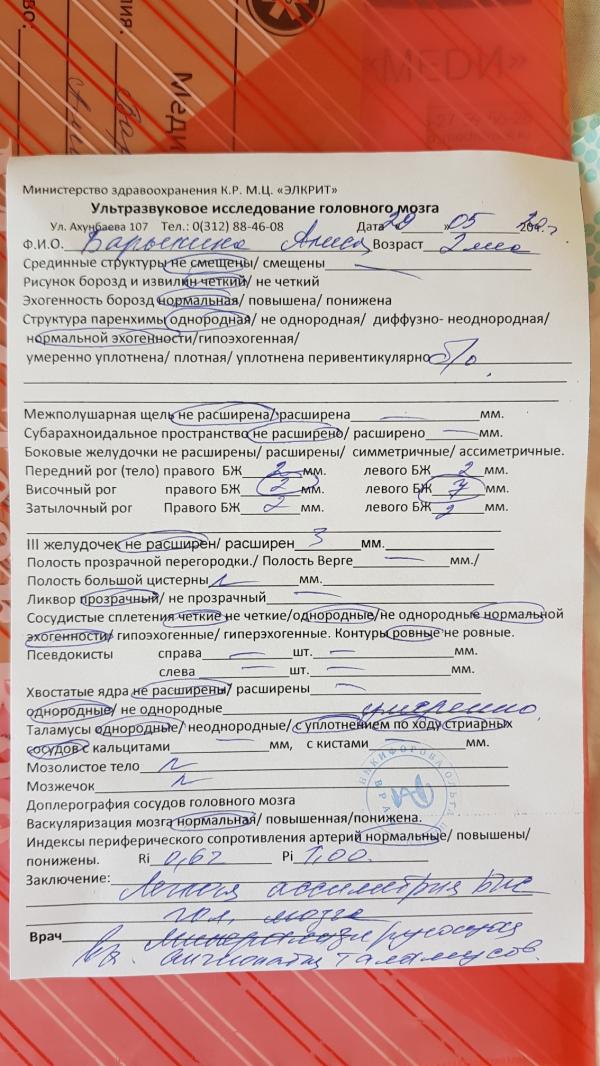 «MEDN»
Меди
Министерство здравоохранения К.Р. М.Ц. «ЭЛКРИТ»
Ультразвуковое исследование головного мозга
Ул. Ахунбаева 107 Тел.: 0(312) 88-46-08 Дата 29 » 05 20 г.
Ф.И.О. Возраст 2 мес
Срединные структуры не смещены/ смещены
Рисунок борозд и извилин четкий/ не четкий
Эхогенность борозд нормальная/ повышена/ понижена
Структура паренхимы однородная/ не однородная/ диффузно- неоднородная/
нормальной эхогенности/гипоэхогенная/
умеренно уплотнена/ плотная/ уплотнена перивентикулярно б/о.
Межполушарная щель не расширена/ расширена мм.
Субарахноидальное пространство не расширено/ расширено мм.
Боковые желудочки не расширены/ расширены/ симметричные/ ассиметричные.
Передний рог (тело) правого БЖ 2 мм. левого БЖ 2 мм.
Височный рог правого БЖ 2 мм. левого БЖ 7 мм.
Затылочный рог Правого БЖ 2 мм. левого БЖ 2 мм.
III желудочек не расширен/ расширен 3 мм.
Полость прозрачной перегородки./ Полость Верге мм./
Полость большой цистерны N мм.
Ликвор прозрачный/ не прозрачный
Сосудистые сплетения четкие не четкие/однородные/не однородные нормальной
эхогенности/ гипоэхогенные/ гиперэхогенные. Контуры ровные не ровные.
Псевдокисты справа шт. мм.
слева шт. мм.
Хвостатые ядра не расширены/ расширены
однородные/ не однородные умеренно.
Таламусы однородные/ неоднородные/ с уплотнением по ходу стриарных
сосудов с кальцитами мм, с кистами мм.
Мозолистое тело N
Мозжечок N
Доплерография сосудов головного мозга
Васкуляризация мозга нормальная/ повышенная/понижена.
Индексы периферического сопротивления артерий нормальные/ повышены/
понижены. Ri 0,62 Pi 1,00.
Заключение: Легкая ассиметрия
гол. мозга
Врач
ангиопатия таламусов.